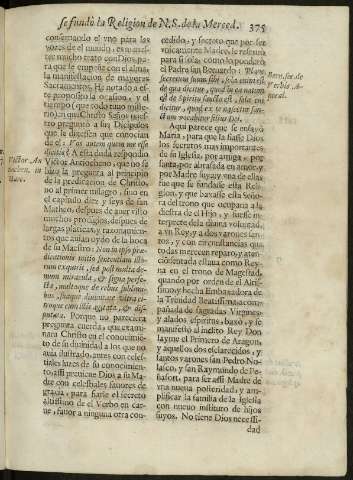 se fundò la Religion de N.S. de la Merced. 375
conseruando el vno para las
vozes de el mundo, es
ter mucho trato con Dios, pa-
ra que le trupose con el alma
la manifestacion de mayores
Sacramentos. He notado a es-
te proposito la ocasion, y el
tiempo (que todo tuuo miste-
rio) en que Christo Señor nues-
tro preguntó a sus Dicipulos
que le dixessen que entendian
de el: Vos autem quem me esse
dicitis? A esta duda respondio
Victor Antiocheno, que no se
hizo la pregunta al principio
de la predicacion de Christo,
no al primer milagro, sino en
el capitulo diez y seys de san
Matheo, despues de auer visto
muchos prodigios, despues de
largas platicas, y razonamien-
tos que auian oydo de la boca
de su Maestro: Non in ipso præ-
dicationis initio sententiam illo-
rum exquirit, sed post multa de-
mum miracula, & signa perfe-
cta, multosque de rebus sublimio-
bus, suaque diuinitate vltro ci-
troque cum illis agitata, & dis-
putata. Porque no pareciera
pregunta cuerda, que exami-
nara Christo en el conocimien-
to de su diuinidad a los que no
auia ilustrado, antes con celes-
tiales luzes de su conocimien-
to; assi preuiene Dios a su Ma-
dre con celestiales fauores de
gracia, para fiarle el secreto
altissimo de el Verbo en car-
ne, fauor a ninguna otra con-
Victor An
tiochen. in
Marc.
cedido, y secreto que por ser
vnicamente Madre, le reseruò
para si sola; como lo ponderò
el Padre san Bernardo:
sola, sola enim est
de qua dicitur, quod ea natum
est de Spiritu Sancto est, sola, cui
dicitur, quod ex te nascetur san-
ctum vocabitur filius Dei.
Aqui parece que se ensayò
Maria, para que la fiasse Dios
los secretos mas importantes
de su Iglesia, por amiga, por
santa, por abrasada en amor, y
por Madre suya; y vna de ellas
fue que se fundasse esta Reli-
gion, y que baxasse esta Seño-
ra del trono que ocupaua a la
diestra de el Hijo, y fuesse in-
terprete de la diuina voluntad,
a vn Rey, y a dos varones san-
tos, y con circunstancias que
todas merecen reparo, y aten-
cion; estandose llaua como Rey-
na en el trono de Magestad,
quando por orden de el Altis-
simo, y hecha Embaxadora de
la Trinidad Beatissima, acom-
pañada de sagradas Virgines,
y alados espiritus, baxò, y se
manifestò al inclito Rey Don
Iayme el Primero de Aragon,
y aquellos dos esclarecidos, y
santos varones san Pedro No-
lasco, y san Raymundo de Pe-
ñafort, para ser assi Madre de
vna nueua posteridad, y am-
plificar la familia de la Iglesia
con nueuo instituto de hijos
suyos. No tiene Dios necessi-
dad
Bern. ser. de
Verbis A-